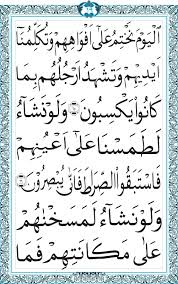 ٱلْيَوْمَ نَخْتِمُ عَلَىٰٓ أَفْوَٰهِهِمْ وَتُكَلِّمُنَآ
أَيْدِيهِمْ وَتَشْهَدُ أَرْجُلُهُم بِمَا
كَانُوا۟ يَكْسِبُونَ ۝ وَلَوْ نَشَآءُ
لَطَمَسْنَا عَلَىٰٓ أَعْيُنِهِمْ
فَٱسْتَبَقُوا۟ ٱلصِّرَٰطَ فَأَنَّىٰ يُبْصِرُونَ ۝
وَلَوْ نَشَآءُ لَمَسَخْنَٰهُمْ
عَلَىٰ مَكَانَتِهِمْ فَمَا